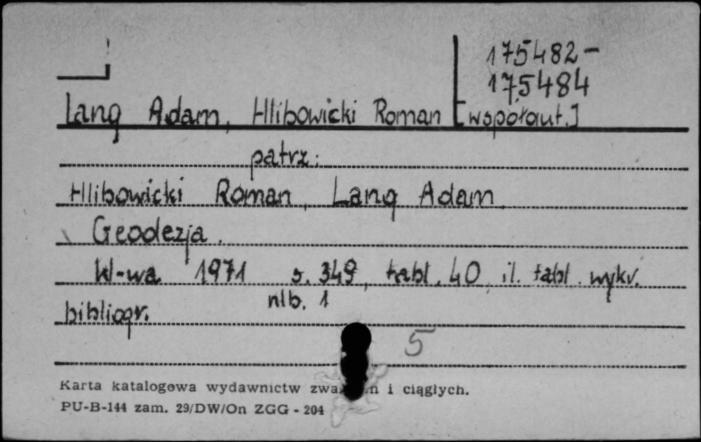 175482-
175484
Lang Adam, Hlibowicki Roman [współaut.]
patrz:
Hlibowicki Roman, Lang Adam
Geodezja.
W-wa 1971 s. 349, tabl. 40, il. tabl. wykr.
nlb. 1
bibliogr.
5
Karta katalogowa wydawnictw i ciągłych.
PU-B-144 zam. 29/DW/On ZGG - 204